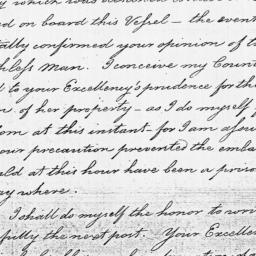 ed on board this Vessel - the event
ally confirmed your opinion of t
thless Man. I conceive my Coun
d to your Excellency's prudence for th
n of her property - as I do myself f
dom at this instant - for I am assur
our precaution prevented the emba
uld at this hour have been a priso
ay where.
I shall do myself the honor to wri
fully the next post. Your Excelle